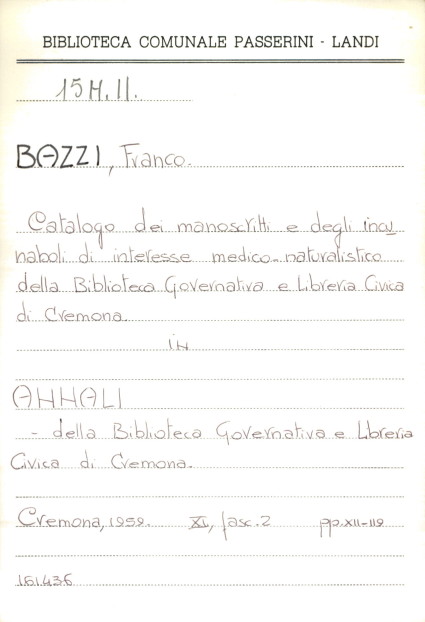 BIBLIOTECA COMUNALE PASSERINI - LANDI
15 H. II.
BAZZI, Franco.
Catalogo dei manoscritti e degli incu
naboli di interesse medico-naturalistico
della Biblioteca Governativa e Libreria Civica
di Cremona.
in
ANNALI
- della Biblioteca Governativa e Libreria
Civica di Cremona.
Cremona, 1959. XI, fasc. 2 pp. XII-119
161436